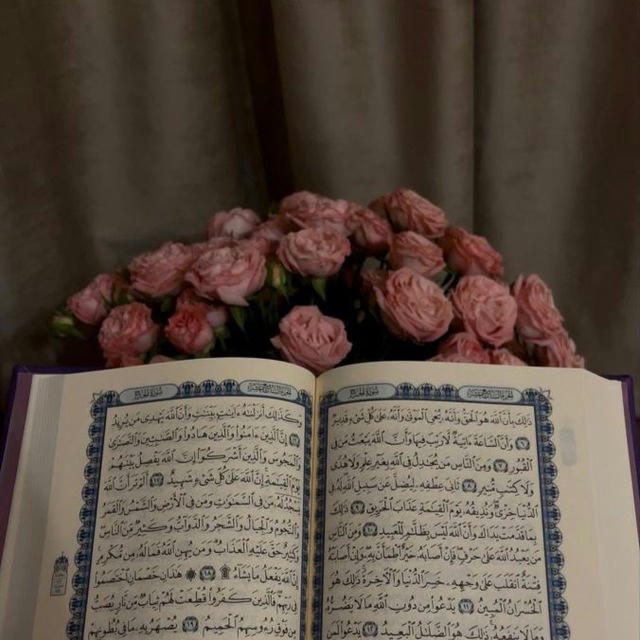 الجزء السابع عشر
سورة الحج
ذَٰلِكَ بِأَنَّ ٱللَّهَ هُوَ ٱلْحَقُّ وَأَنَّهُۥ يُحْىِ ٱلْمَوْتَىٰ وَأَنَّهُۥ عَلَىٰ كُلِّ شَىْءٍ قَدِيرٌ
٦ وَأَنَّ ٱلسَّاعَةَ ءَاتِيَةٌ لَّا رَيْبَ فِيهَا وَأَنَّ ٱللَّهَ يَبْعَثُ مَن فِى
ٱلْقُبُورِ ٧ وَمِنَ ٱلنَّاسِ مَن يُجَٰدِلُ فِى ٱللَّهِ بِغَيْرِ عِلْمٍ وَلَا هُدًى
وَلَا كِتَٰبٍ مُّنِيرٍ ٨ ثَانِىَ عِطْفِهِۦ لِيُضِلَّ عَن سَبِيلِ ٱللَّهِ لَهُۥ فِى
ٱلدُّنْيَا خِزْىٌ وَنُذِيقُهُۥ يَوْمَ ٱلْقِيَٰمَةِ عَذَابَ ٱلْحَرِيقِ ٩ ذَٰلِكَ
بِمَا قَدَّمَتْ يَدَاكَ وَأَنَّ ٱللَّهَ لَيْسَ بِظَلَّٰمٍ لِّلْعَبِيدِ ١٠ وَمِنَ ٱلنَّاسِ
مَن يَعْبُدُ ٱللَّهَ عَلَىٰ حَرْفٍ فَإِنْ أَصَابَهُۥ خَيْرٌ ٱطْمَأَنَّ بِهِۦ وَإِنْ أَصَابَتْهُ
فِتْنَةٌ ٱنقَلَبَ عَلَىٰ وَجْهِهِۦ خَسِرَ ٱلدُّنْيَا وَٱلْءَاخِرَةَ ذَٰلِكَ هُوَ
ٱلْخُسْرَانُ ٱلْمُبِينُ ١١ يَدْعُوا۟ مِن دُونِ ٱللَّهِ مَا لَا يَضُرُّهُۥ
وَمَا لَا يَنفَعُهُۥ ذَٰلِكَ هُوَ ٱلضَّلَٰلُ ٱلْبَعِيدُ ١٢ يَدْعُوا۟ لَمَن
الجزء السابع عشر
سورة الحج
وَكَذَٰلِكَ أَنزَلْنَٰهُ ءَايَٰتٍۭ بَيِّنَٰتٍ وَأَنَّ ٱللَّهَ يَهْدِى مَن يُرِيدُ
١٦ إِنَّ ٱلَّذِينَ ءَامَنُوا۟ وَٱلَّذِينَ هَادُوا۟ وَٱلصَّٰبِـِٔينَ وَٱلنَّصَٰرَىٰ
وَٱلْمَجُوسَ وَٱلَّذِينَ أَشْرَكُوٓا۟ إِنَّ ٱللَّهَ يَفْصِلُ بَيْنَهُمْ
يَوْمَ ٱلْقِيَٰمَةِ إِنَّ ٱللَّهَ عَلَىٰ كُلِّ شَىْءٍ شَهِيدٌ ١٧ أَلَمْ تَرَ أَنَّ ٱللَّهَ
يَسْجُدُ لَهُۥ مَن فِى ٱلسَّمَٰوَٰتِ وَمَن فِى ٱلْأَرْضِ وَٱلشَّمْسُ وَٱلْقَمَرُ
وَٱلنُّجُومُ وَٱلْجِبَالُ وَٱلشَّجَرُ وَٱلدَّوَآبُّ وَكَثِيرٌ مِّنَ ٱلنَّاسِ
وَكَثِيرٌ حَقَّ عَلَيْهِ ٱلْعَذَابُ وَمَن يُهِنِ ٱللَّهُ فَمَا لَهُۥ مِن مُّكْرِمٍ
إِنَّ ٱللَّهَ يَفْعَلُ مَا يَشَآءُ ۩ ١٨ ۞ هَٰذَانِ خَصْمَانِ ٱخْتَصَمُوا۟
فِى رَبِّهِمْ فَٱلَّذِينَ كَفَرُوا۟ قُطِّعَتْ لَهُمْ ثِيَابٌ مِّن نَّارٍ يُصَبُّ
مِن فَوْقِ رُءُوسِهِمُ ٱلْحَمِيمُ ١٩ يُصْهَرُ بِهِۦ مَا فِى بُطُونِهِمْ